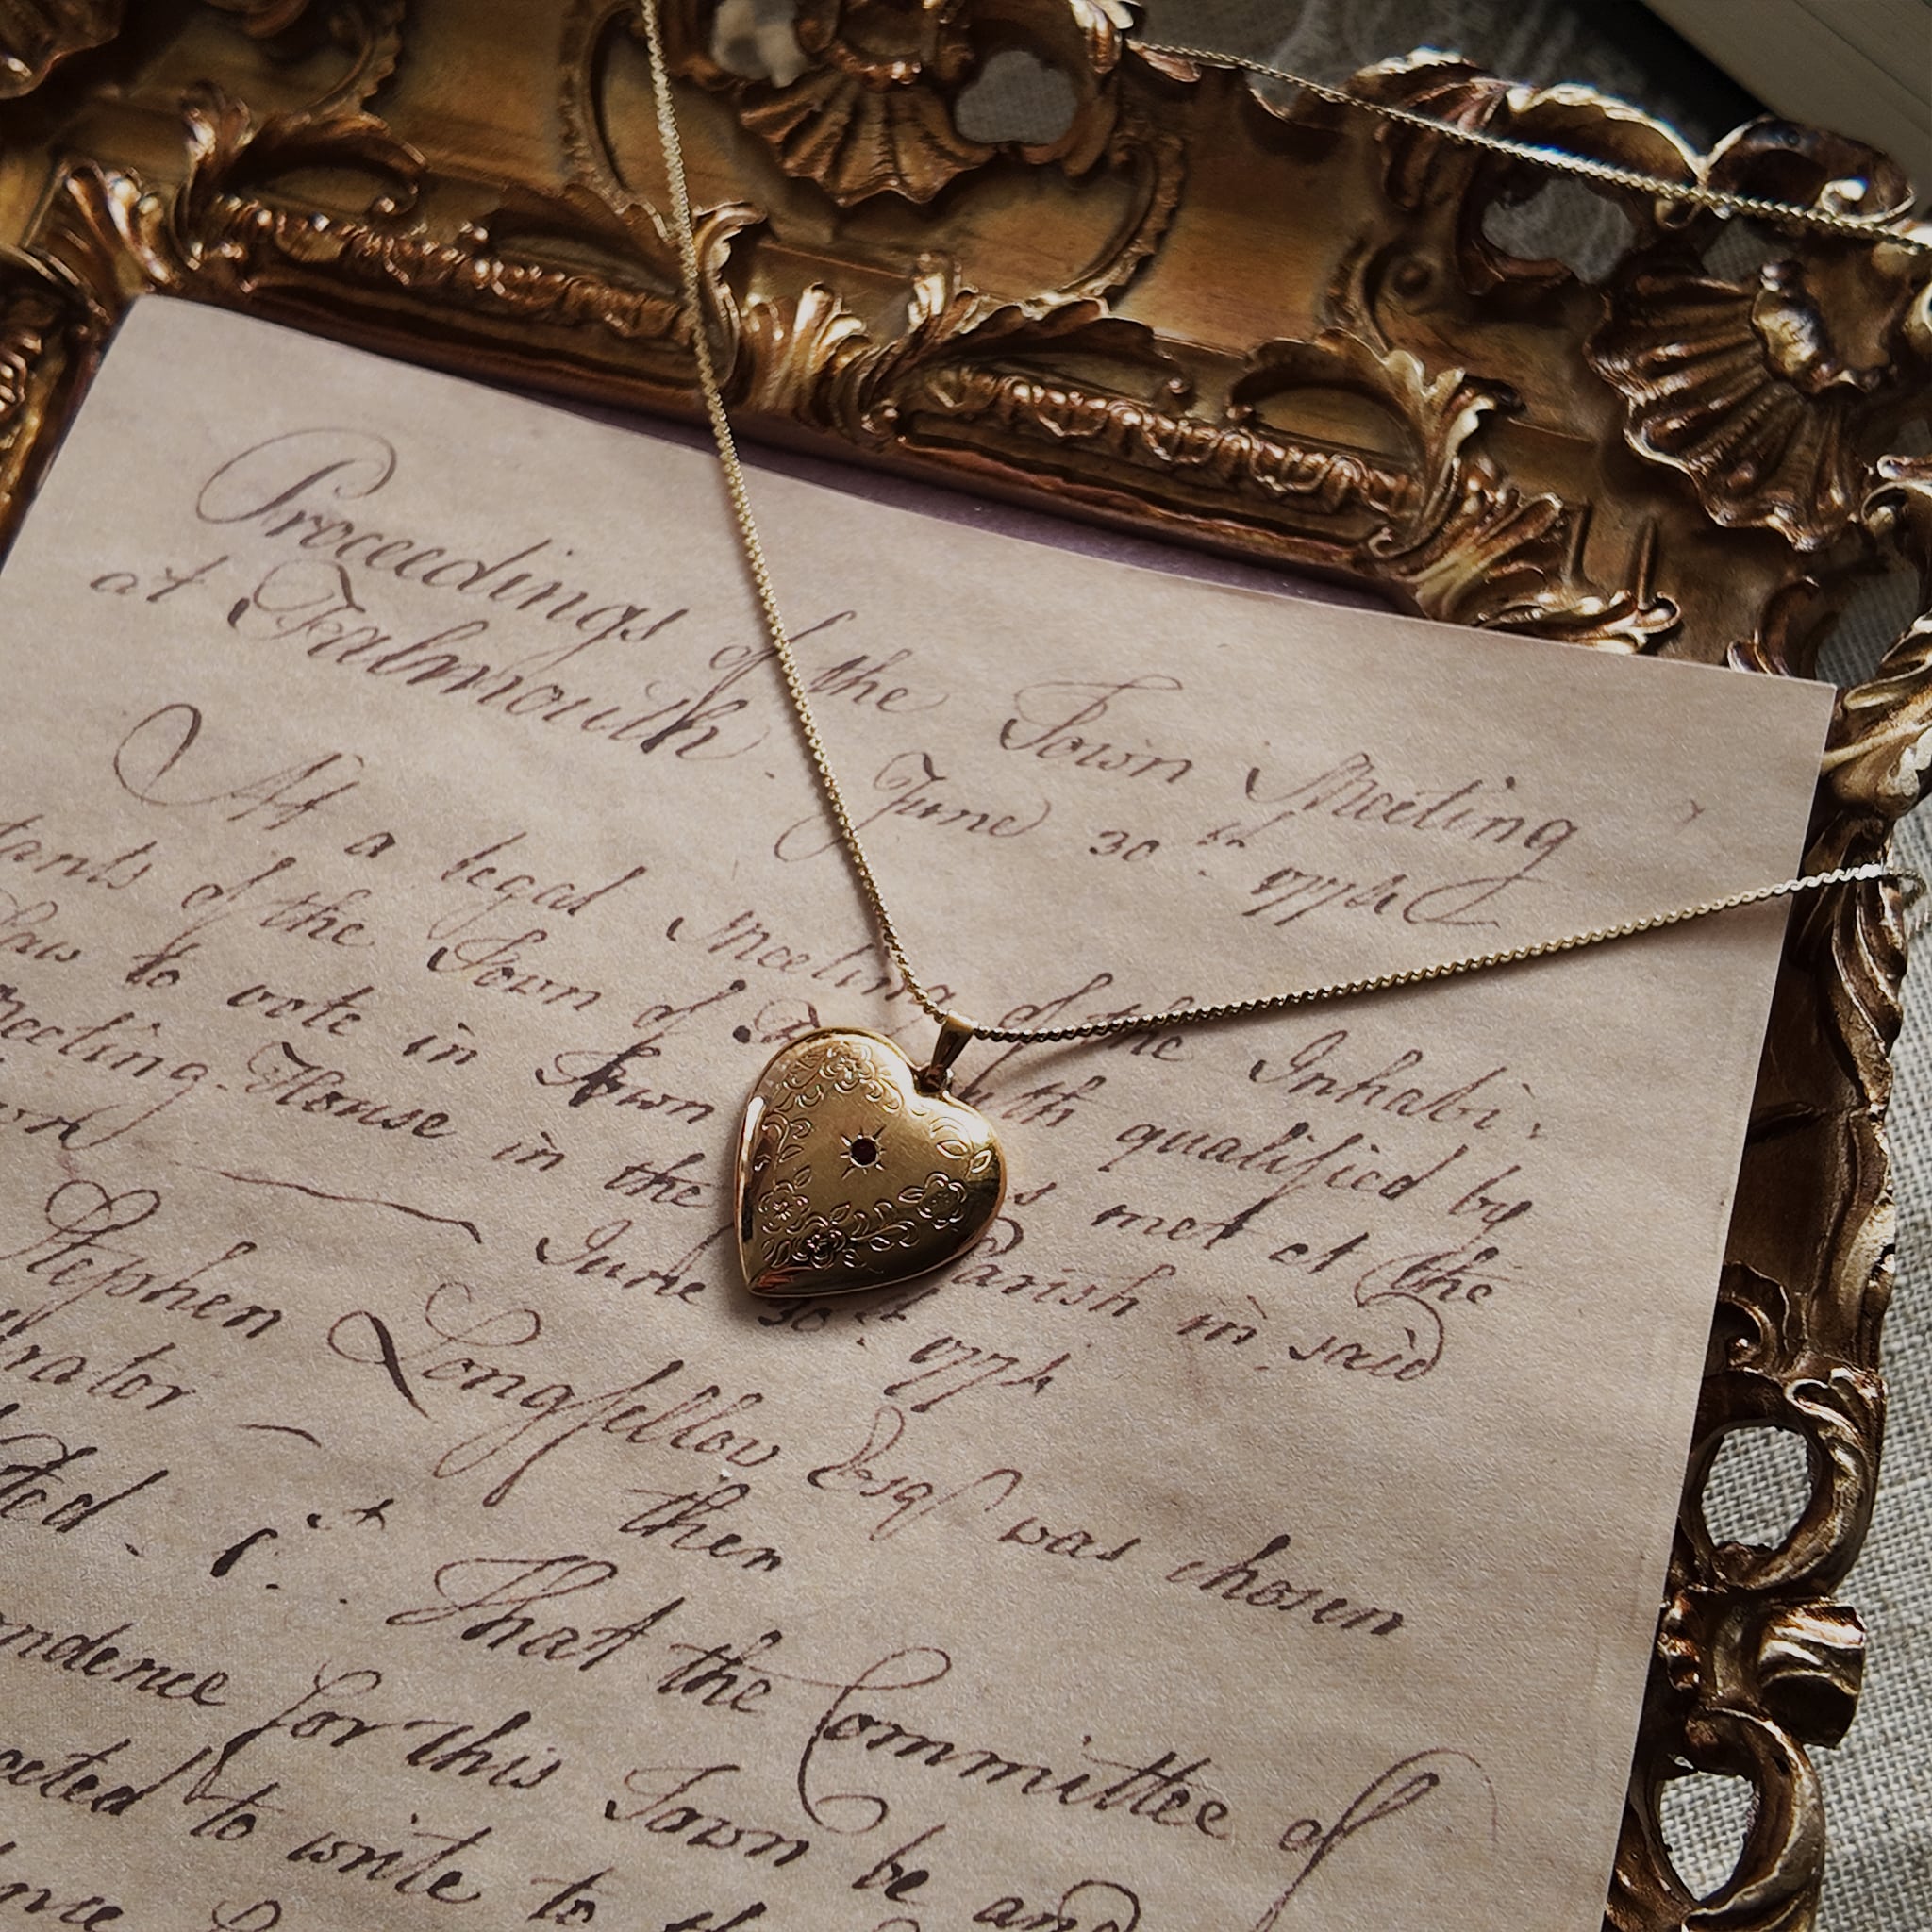 Proceedings of the Town Meeting
at Falmouth. June 30th 1774
At a legal Meeting of the Inhabi-
tants of the Town of qualified by
Law to vote in Town met at the
Meeting-House in the Parish in said
June 30th 1774
Stephen Longfellow Esqr was chosen
then
That the Committee of
for this Town be and
to write to